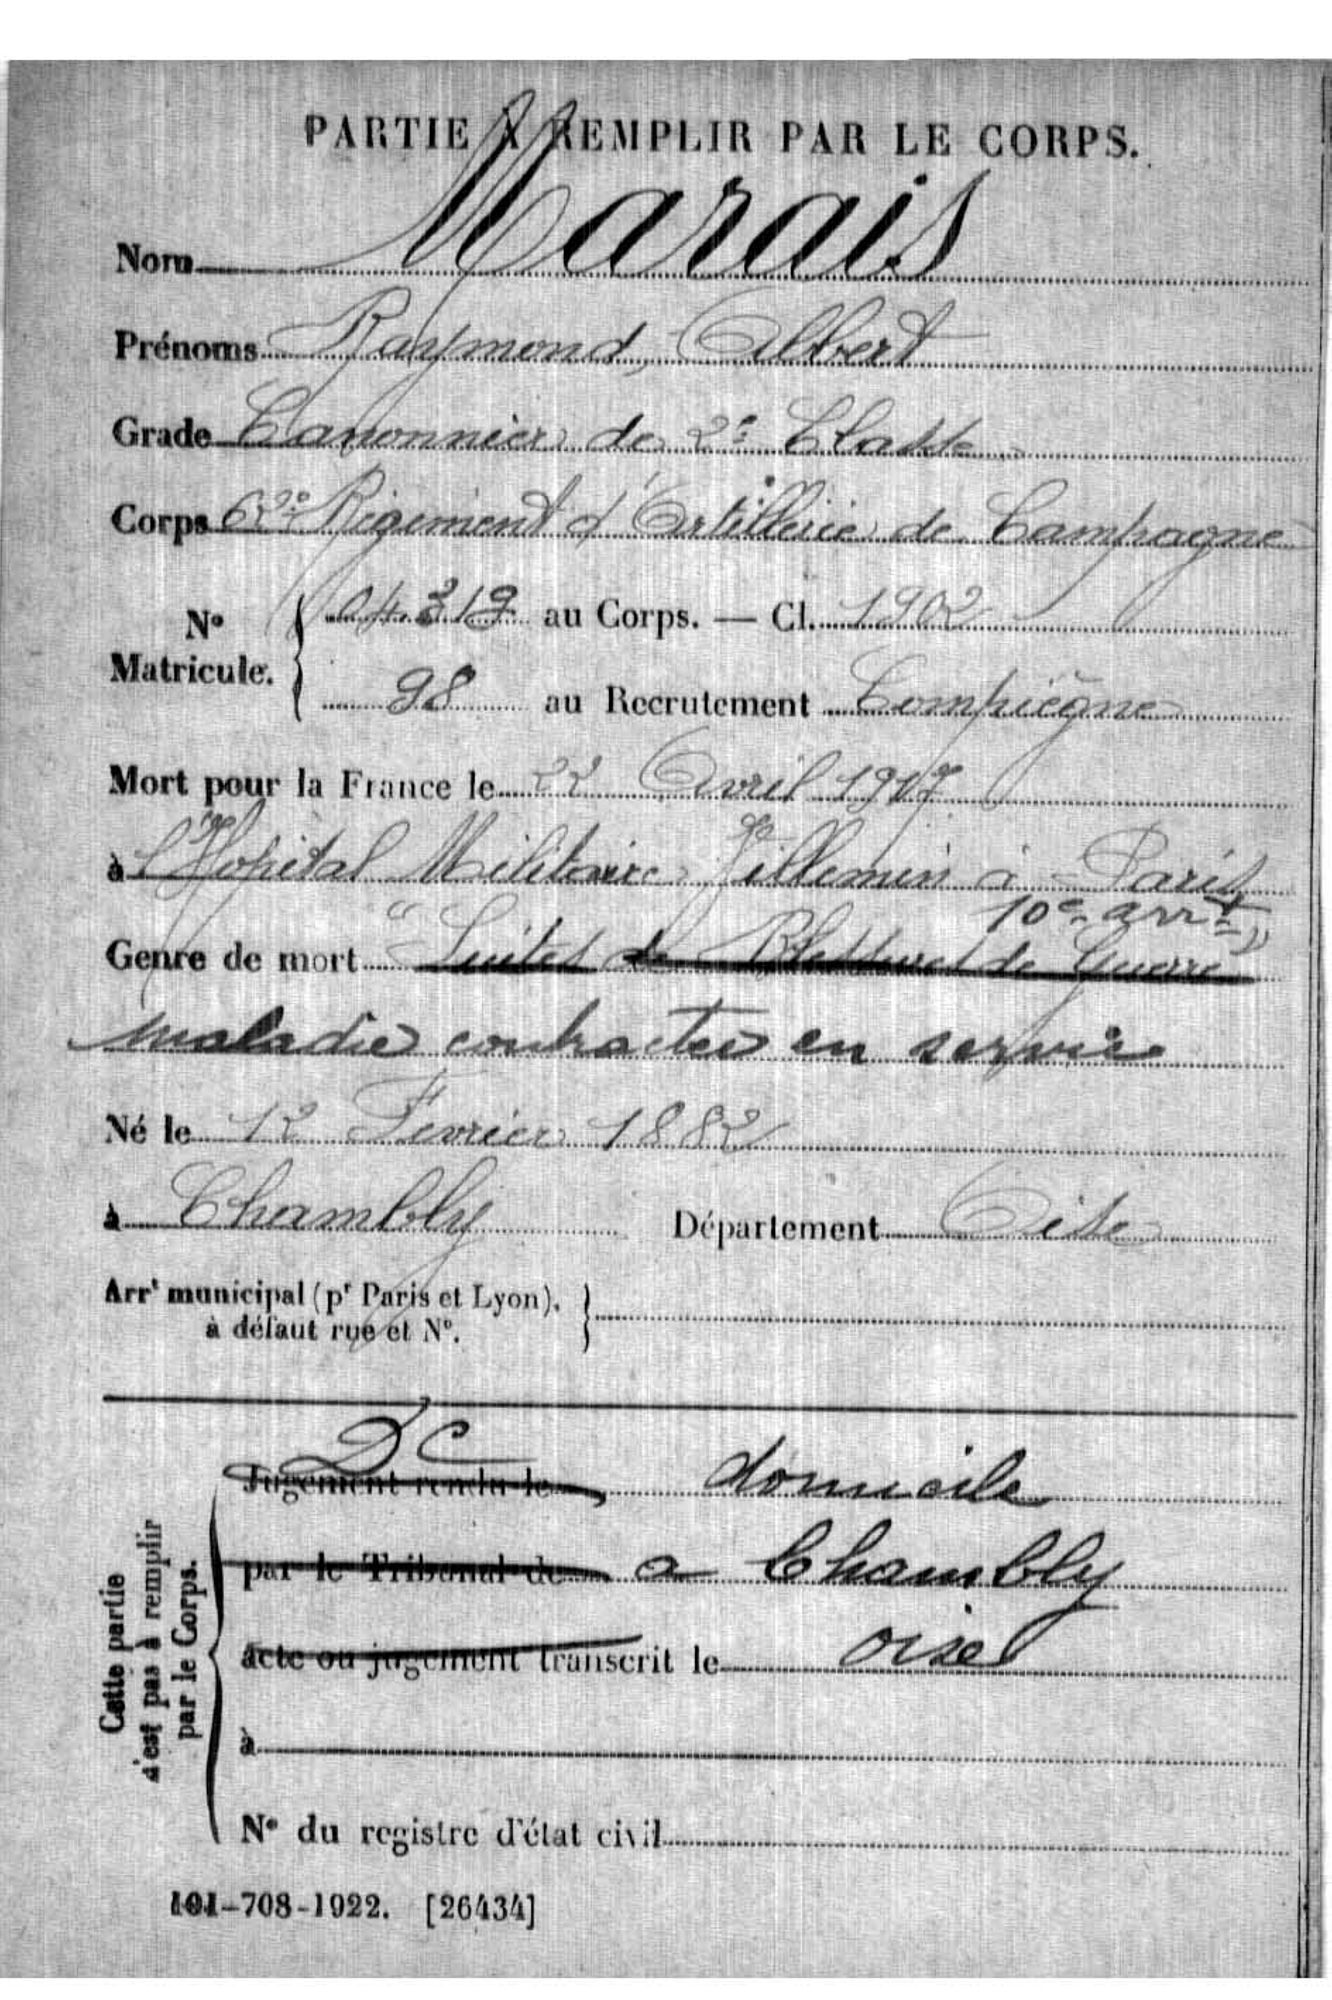 PARTIE A REMPLIR PAR LE CORPS.
Nom Marais
Prénoms Raymond, Albert
Grade Canonnier de 2e Classe
Corps 62e Régiment d'Artillerie de Campagne
N° 04.319 au Corps. — Cl. 1902
Matricule. 98 au Recrutement Compiègne
Mort pour la France le 22 Avril 1917
à l'Hopital Militaire Villemin à Paris
10e arrt
Genre de mort "Suites de Blessures de Guerre"
maladie contractée en service
Né le 12 Fevrier 1882
à Chambly Département Oise
Arrt municipal (pr Paris et Lyon),
à défaut rue et N°.
DC
Jugement rendu le domicile
par le Tribunal de a Chambly
acte ou jugement transcrit le oise
à
N° du registre d'état civil
Cette partie
n'est pas à remplir
par le Corps.
101-708-1922. [26434]